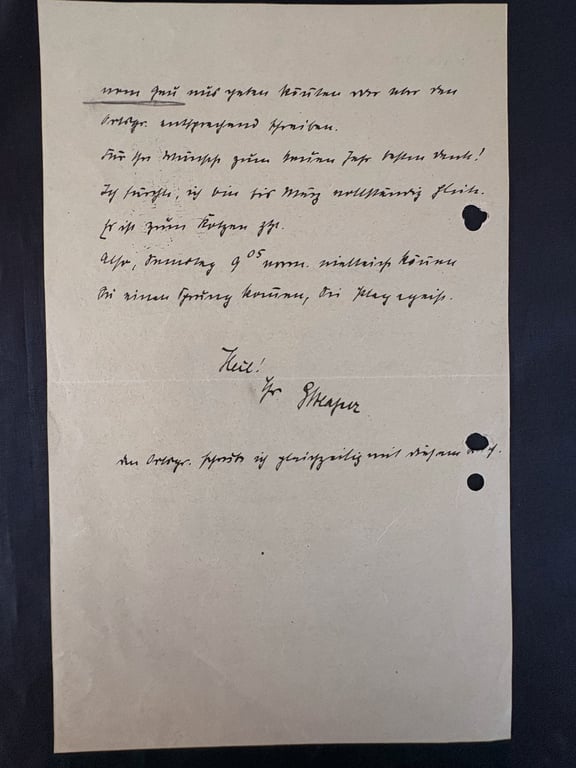 vom Gau aus geben könnten oder aber den
Ortsgr. entsprechend schreiben.
Für Ihre Wünsche zum neuen Jahr besten Dank!
Ich fürchte, ich bin bis März vollständig pleite.
Es ist zum Kotzen
Also, Samstag 9 05 vorm. vielleicht können
Sie einen Sprung kommen, Sie Plagegeist.
Heil!
Ihr
den Ortsgr. schreibe ich gleichzeitig mit diesem